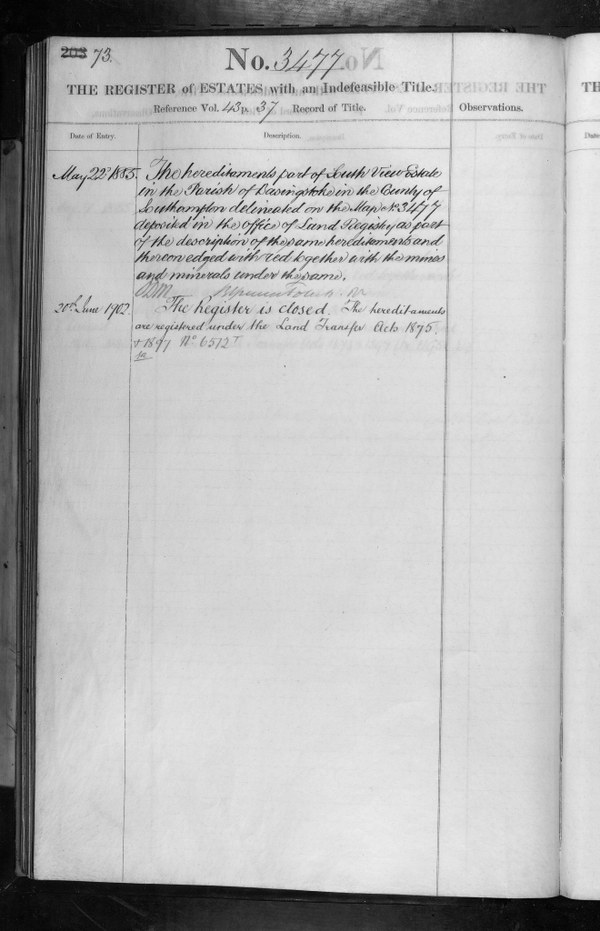 203 73.
No. 3477
THE REGISTER of ESTATES with an Indefeasible Title.
Reference Vol. 43 p. 37 Record of Title.
Observations.
Date of Entry.
Description.
May 22d 1885.
The hereditaments part of South View Estate
in the Parish of Basingstoke in the County of
Southampton delineated on the Map No 3477
deposited in the office of Land Registry as part
of the description of the same hereditaments and
thereon edged with red together with the mines
and minerals under the same.
20th June 1902.
The Register is closed. The hereditaments
are registered under the Land Transfer Acts 1875
& 1897 No 6512
TH
Date